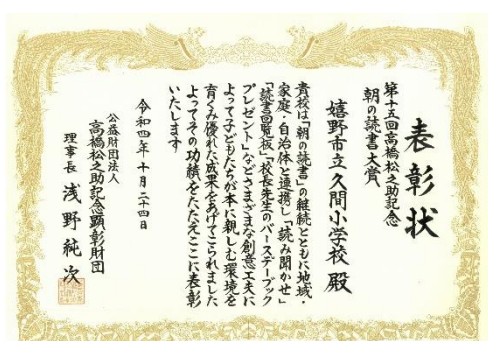 表彰状
第十五回高橋松之助記念
朝の読書大賞
嬉野市立久間小学校 殿
貴校は「朝の読書」の継続とともに地域・
家庭・自治体と連携し「読み聞かせ」
「読書回覧板」「校長先生のバースデーブック
プレゼント」などさまざまな創意工夫に
よって子どもたちが本に親しむ環境を
育くみ優れた成果をあげてこられました
よってその功績をたたえここに表彰
いたします
令和四年十月二十四日
公益財団法人
高橋松之助記念顕彰財団
理事長 浅野純次